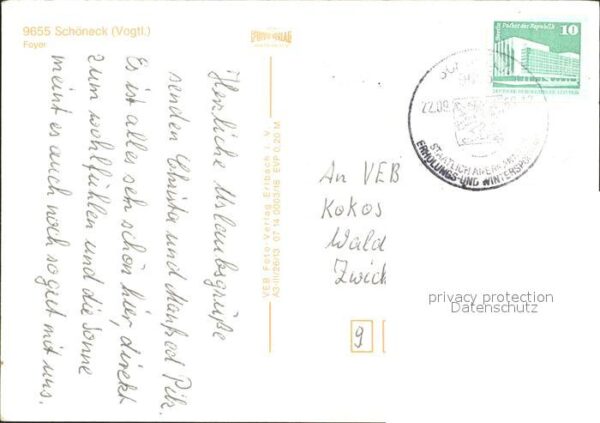 9655 Schöneck (Vogtl.)
Foyer
Herzliche Urlaubsgrüße
senden Christa und Manfred Pilz.
Es ist alles seh schön hier, direkt
zum wohlfühlen und die Sonne
meint es auch noch so gut mit uns.
VEB Foto-Verlag Erlbach i. V.
A3/III/26/13 07 14 0003/18 EVP 0,20 M
Berlin Palast der Republik
10
22.09
STAATLICH ANERKANNT
ERHOLUNGS-UND WINTERSPO
An VEB
Kokos
Wald
Zwick
9
privacy protection
Datenschutz